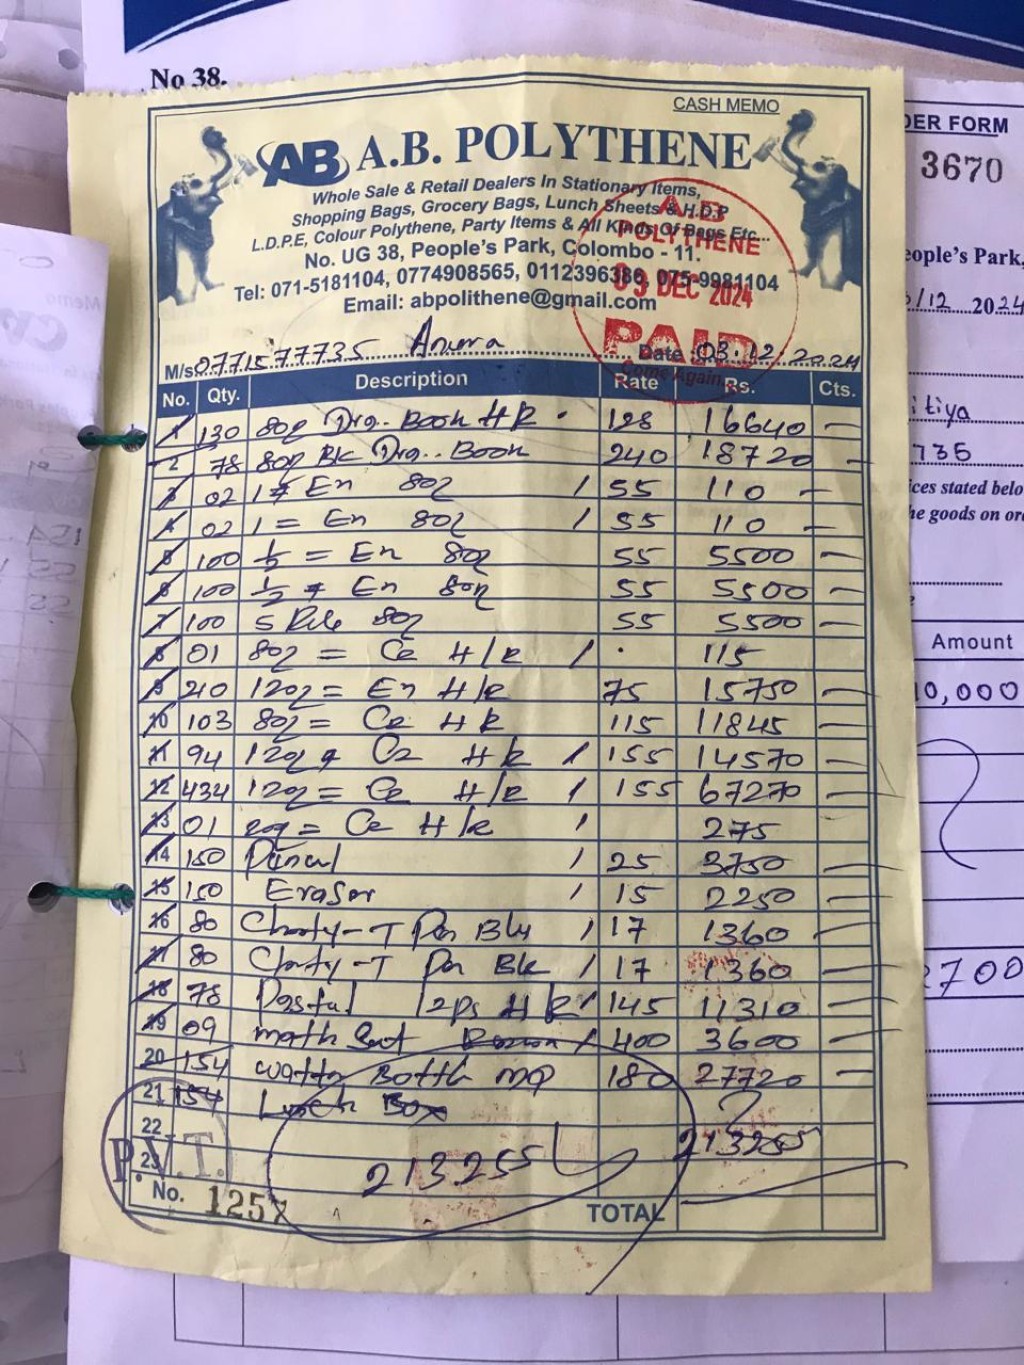 No 38.
CASH MEMO
AB A.B. POLYTHENE
Whole Sale & Retail Dealers In Stationary Items,
Shopping Bags, Grocery Bags, Lunch Sheets & H.D.P
L.D.P.E, Colour Polythene, Party Items & All Kinds Of Bags Etc...
No. UG 38, People's Park, Colombo - 11.
Tel: 071-5181104, 0774908565, 0112396386, 075-9981104
Email: abpolithene@gmail.com
A.B
POLYTHENE
DEC 2024
PAID
Come Again
M/s 0771577735 Anura Date 03.12.2024
No. Qty. Description Rate Rs. Cts.
1 130 80p Drg. Book HR 128 16640 -
2 78 80p Bk Drg.. Book 240 18720 -
3 02 En 80p 55 110 -
4 02 1 = En 80p 55 110 -
5 100 = En 80p 55 5500 -
6 100 1/2 En 80p 55 5500 -
7 100 5 Rule 80p 55 5500 -
8 01 80p = Cr H/R 115
9 210 120p = En H/R 75 15750 -
10 103 80p = Cr HR 115 11845 -
11 94 120p Cr HR 155 14570 -
12 434 120p = Cr H/R 155 67270 -
13 01 = Cr H/R 275
14 150 25 3750 -
15 150 Eraser 15 2250 -
16 80 17 1360 -
17 80 17 1360 -
18 78 12ps HR 145 11310 -
19 09 math Set 400 3600 -
20 154 Bottle 180 27720 -
21 154 Lunch Box
22
23
213255 213255
P.V.T.
No. 1257
TOTAL
DER FORM
3670
eople's Park,
/12 2024
itiya
735
ices stated belo
he goods on or
Amount
10,000
2700